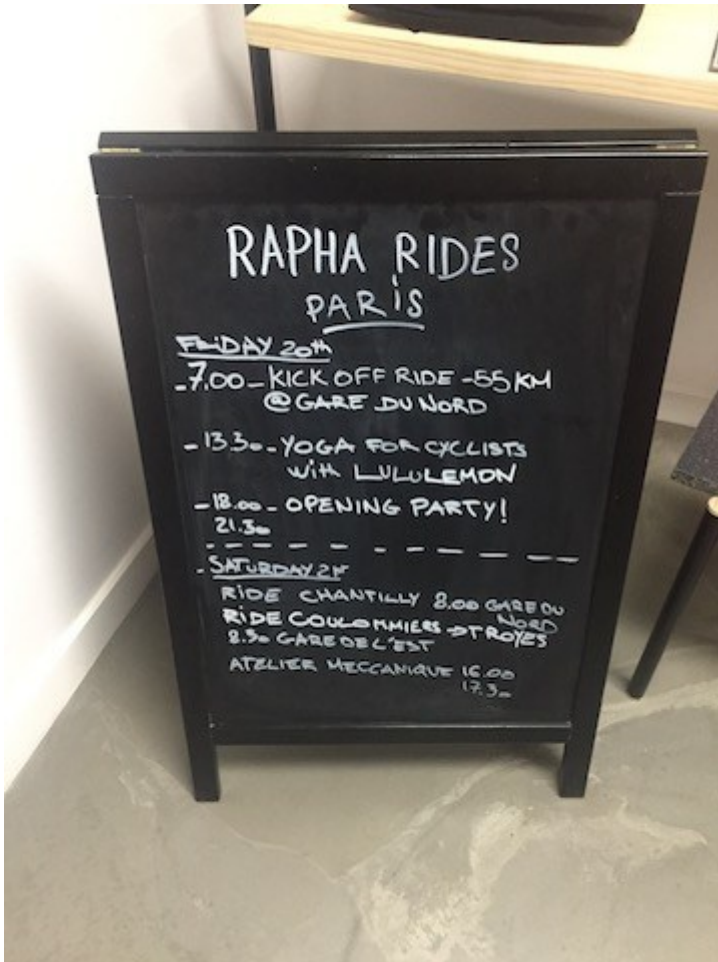 RAPHA RIDES
PARIS
FRIDAY 20th
- 7.00 - KICK OFF RIDE - 55 KM
@ GARE DU NORD
- 13.30 - YOGA FOR CYCLISTS
with LULULEMON
- 18.00 - OPENING PARTY!
21.30
- SATURDAY 21st
RIDE CHANTILLY 8.00 GARE DU
NORD
RIDE COULOMMIERS → TROYES
8.30 GARE DE L'EST
ATELIER MECCANIQUE 16.00
17.30